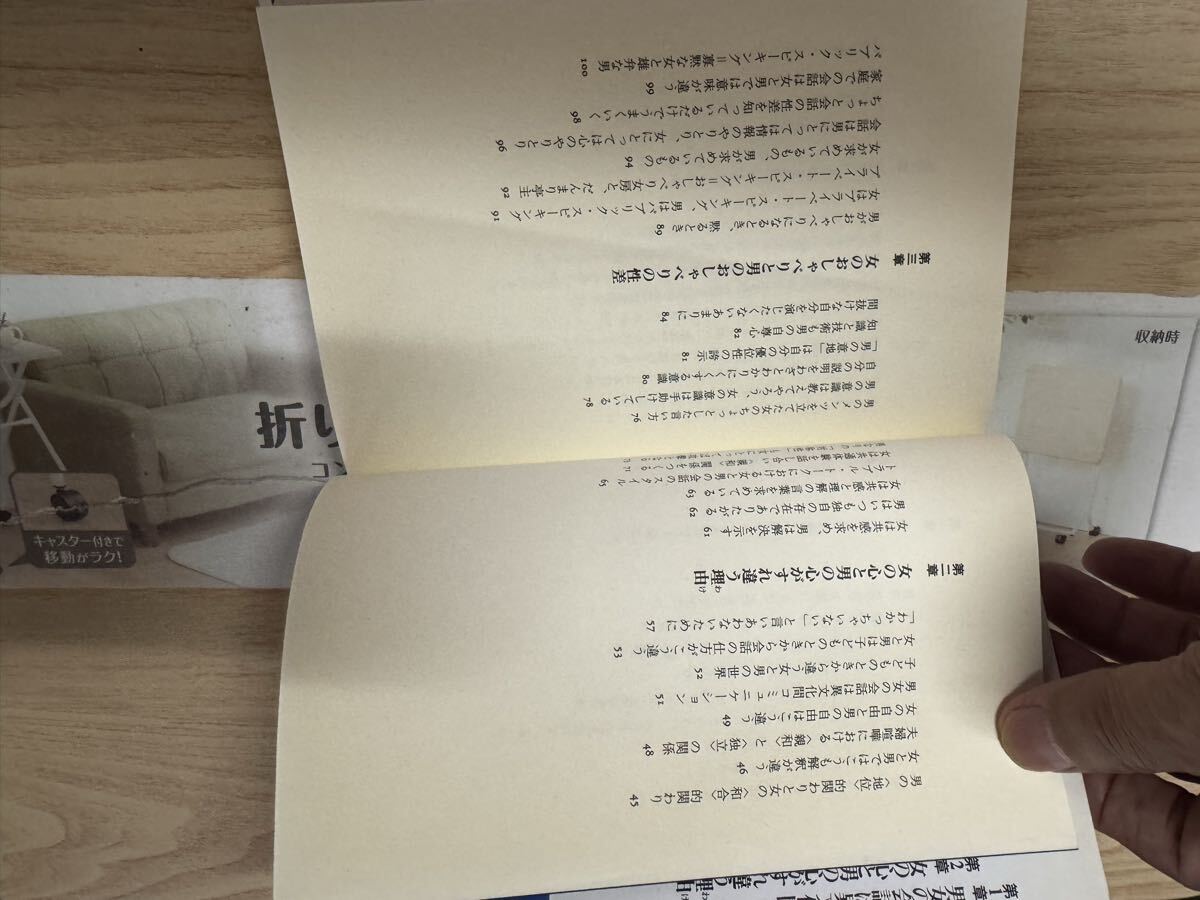 男の〈地位〉的関わりと女の〈和合〉的関わり 45
女と男ではこうも解釈が違う 46
夫婦喧嘩における〈親和〉と〈独立〉の関係 48
女の自由と男の自由はこう違う 49
男女の会話は異文化間コミュニケーション 51
子どものときから違う女と男の世界 52
女と男は子どものときから会話の仕方がこう違う 53
「わかっちゃいない」と言いあわないために 57
第二章 女の心と男の心がすれ違う理由
わけ
女は共感を求め、男は解決を示す 61
男はいつも独自の存在でありたがる 62
女は共感と理解の言葉を求めている 63
トラブル・トークにおける男と女の会話のスタイル 65
女は共通体験を話し合い〈親和〉関係をつくる 71
男のメンツを立てた女のちょっとした言い方 76
男の意識は教えてやろう、女の意識は手助けしている 78
自分の説明をわざとわかりにくくする意識 80
「男の意地」は自分の優位性の誇示 81
知識と技術も男の自尊心 82
間抜けな自分を演じたくないあまりに 84
第三章 女のおしゃべりと男のおしゃべりの性差
男がおしゃべりになるとき、黙るとき 89
女はプライベート・スピーキング、男はパブリック・スピーキング 91
プライベート・スピーキング＝おしゃべり女房と、だんまり亭主 92
女が求めているもの、男が求めているもの 94
会話は男にとっては情報のやりとり、女にとっては心のやりとり 96
ちょっと会話の性差を知っているだけでうまくいく 98
家庭での会話は女と男では意味が違う 99
パブリック・スピーキング＝寡黙な女と雄弁な男 100
収納時
折り
キャスター付きで
移動がラク!
第1章
第2章 女の心と男の心がすれ違う理由
わけ